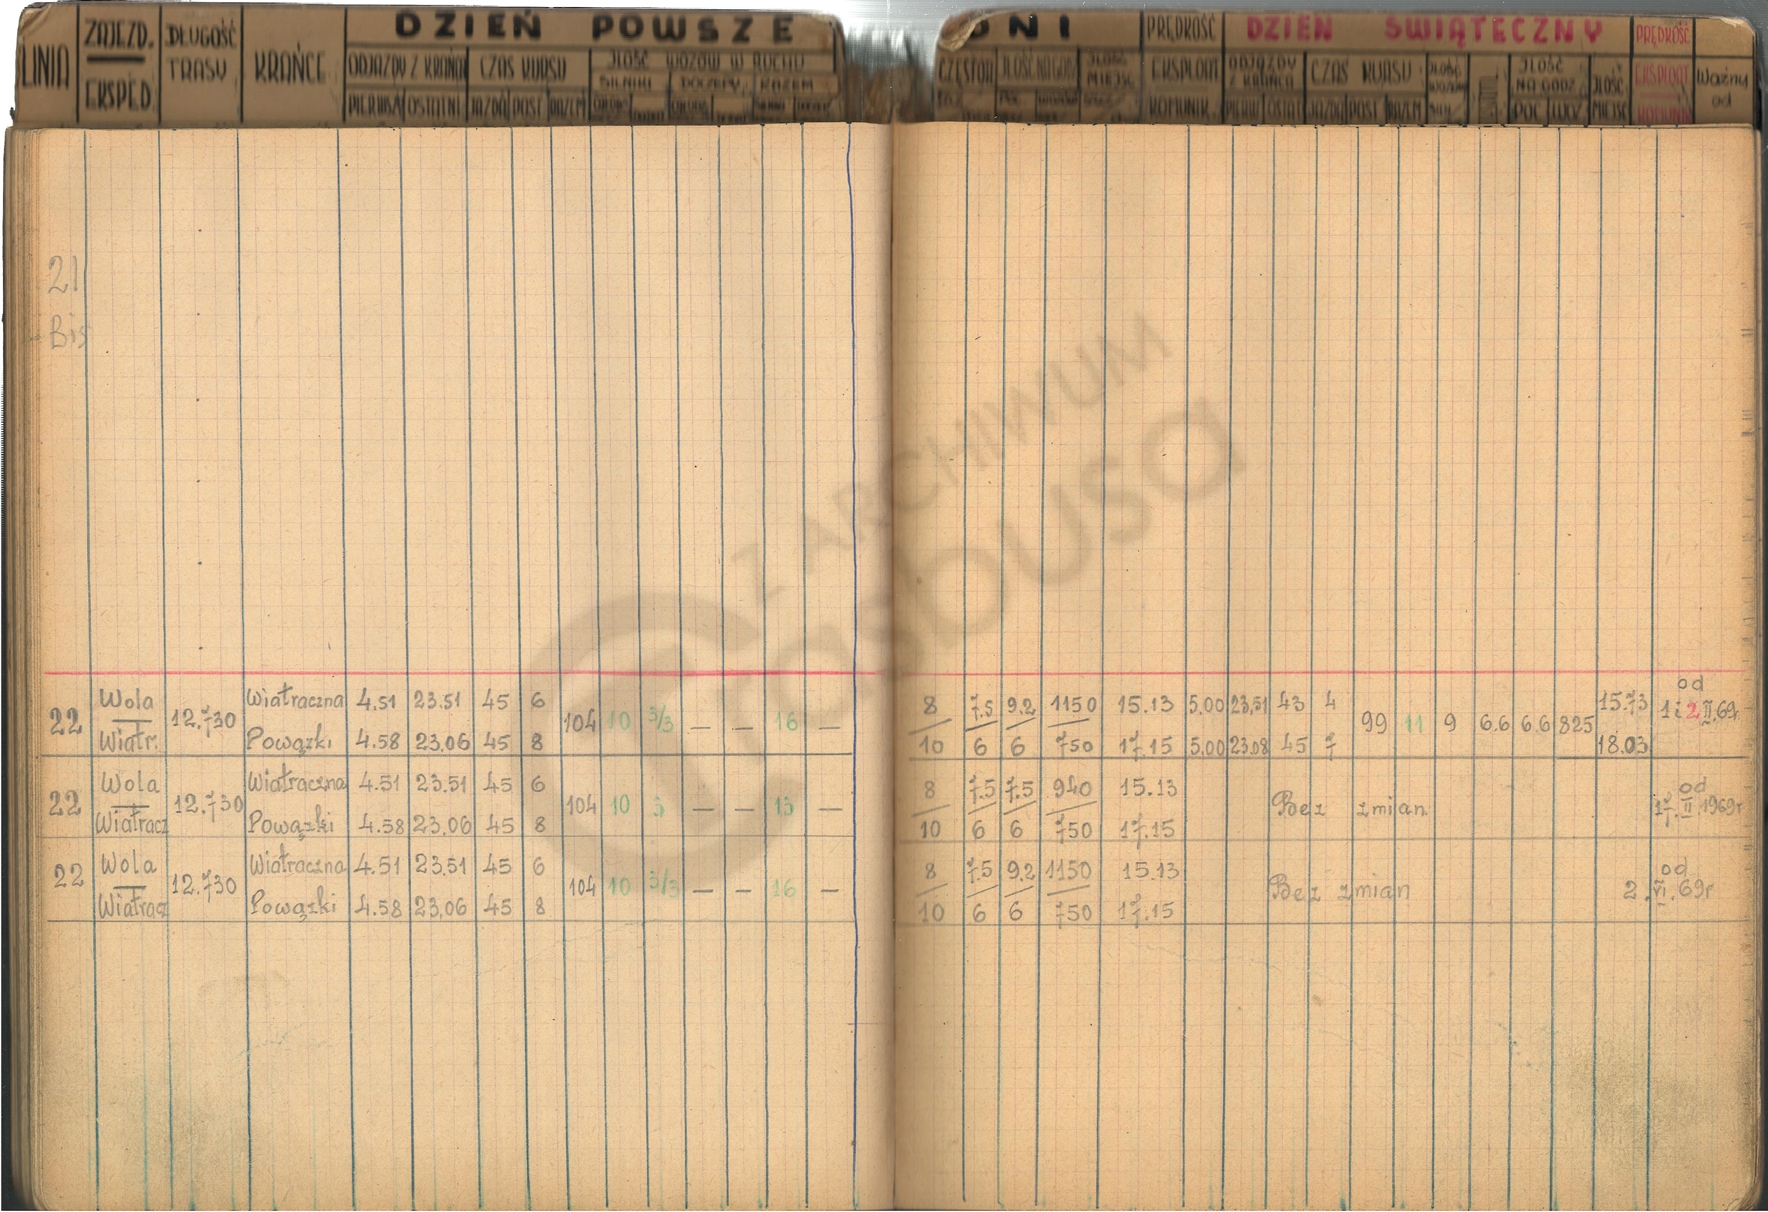 LINIA ZAJEZD. EKSPED. DŁUGOŚĆ TRASY KRAŃCE DZIEŃ POWSZE DNI PRĘDKOŚĆ DZIEŃ ŚWIĄTECZNY PRĘDKOŚĆ
ODJAZDY Z KRAŃCA CZAS KURSU ILOŚĆ WOZÓW W RUCHU ILOŚĆ MIEJSC EKSPLOAT. KOMUNIK. ODJAZDY Z KRAŃCA CZAS KURSU ILOŚĆ NA GODZ. ILOŚĆ MIEJSC EKSPLOAT. KOMUNIK. Ważny od
SILNIKI DOCZEPY RAZEM
PIERWSZ OSTATNI JAZDA POST RAZEM PIERW OSTAT JAZDA POST RAZEM POC
21
Bis
Z ARCHIWUM
Trasbusa
22 Wola 12.730 Wiatraczna 4.51 23.51 45 6 104 10 3/3 — — 16 — 8 7.5 9.2 1150 15.13 5.00 23.51 43 4 99 11 9 6.6 6.6 825 15.73 od 1 i 2 II.69r
Wiatr. Powązki 4.58 23.06 45 8 10 6 6 750 17.15 5.00 23.08 45 7 18.03
22 Wola 12.730 Wiatraczna 4.51 23.51 45 6 104 10 3 — — 13 — 8 7.5 7.5 940 15.13 Bez zmian od 17.II.1969r
Wiatracz Powązki 4.58 23.06 45 8 10 6 6 750 17.15
22 Wola 12.730 Wiatraczna 4.51 23.51 45 6 104 10 3/3 — — 16 — 8 7.5 9.2 1150 15.13 Bez zmian od 2.VI.69r
Wiatracz Powązki 4.58 23.06 45 8 10 6 6 750 17.15